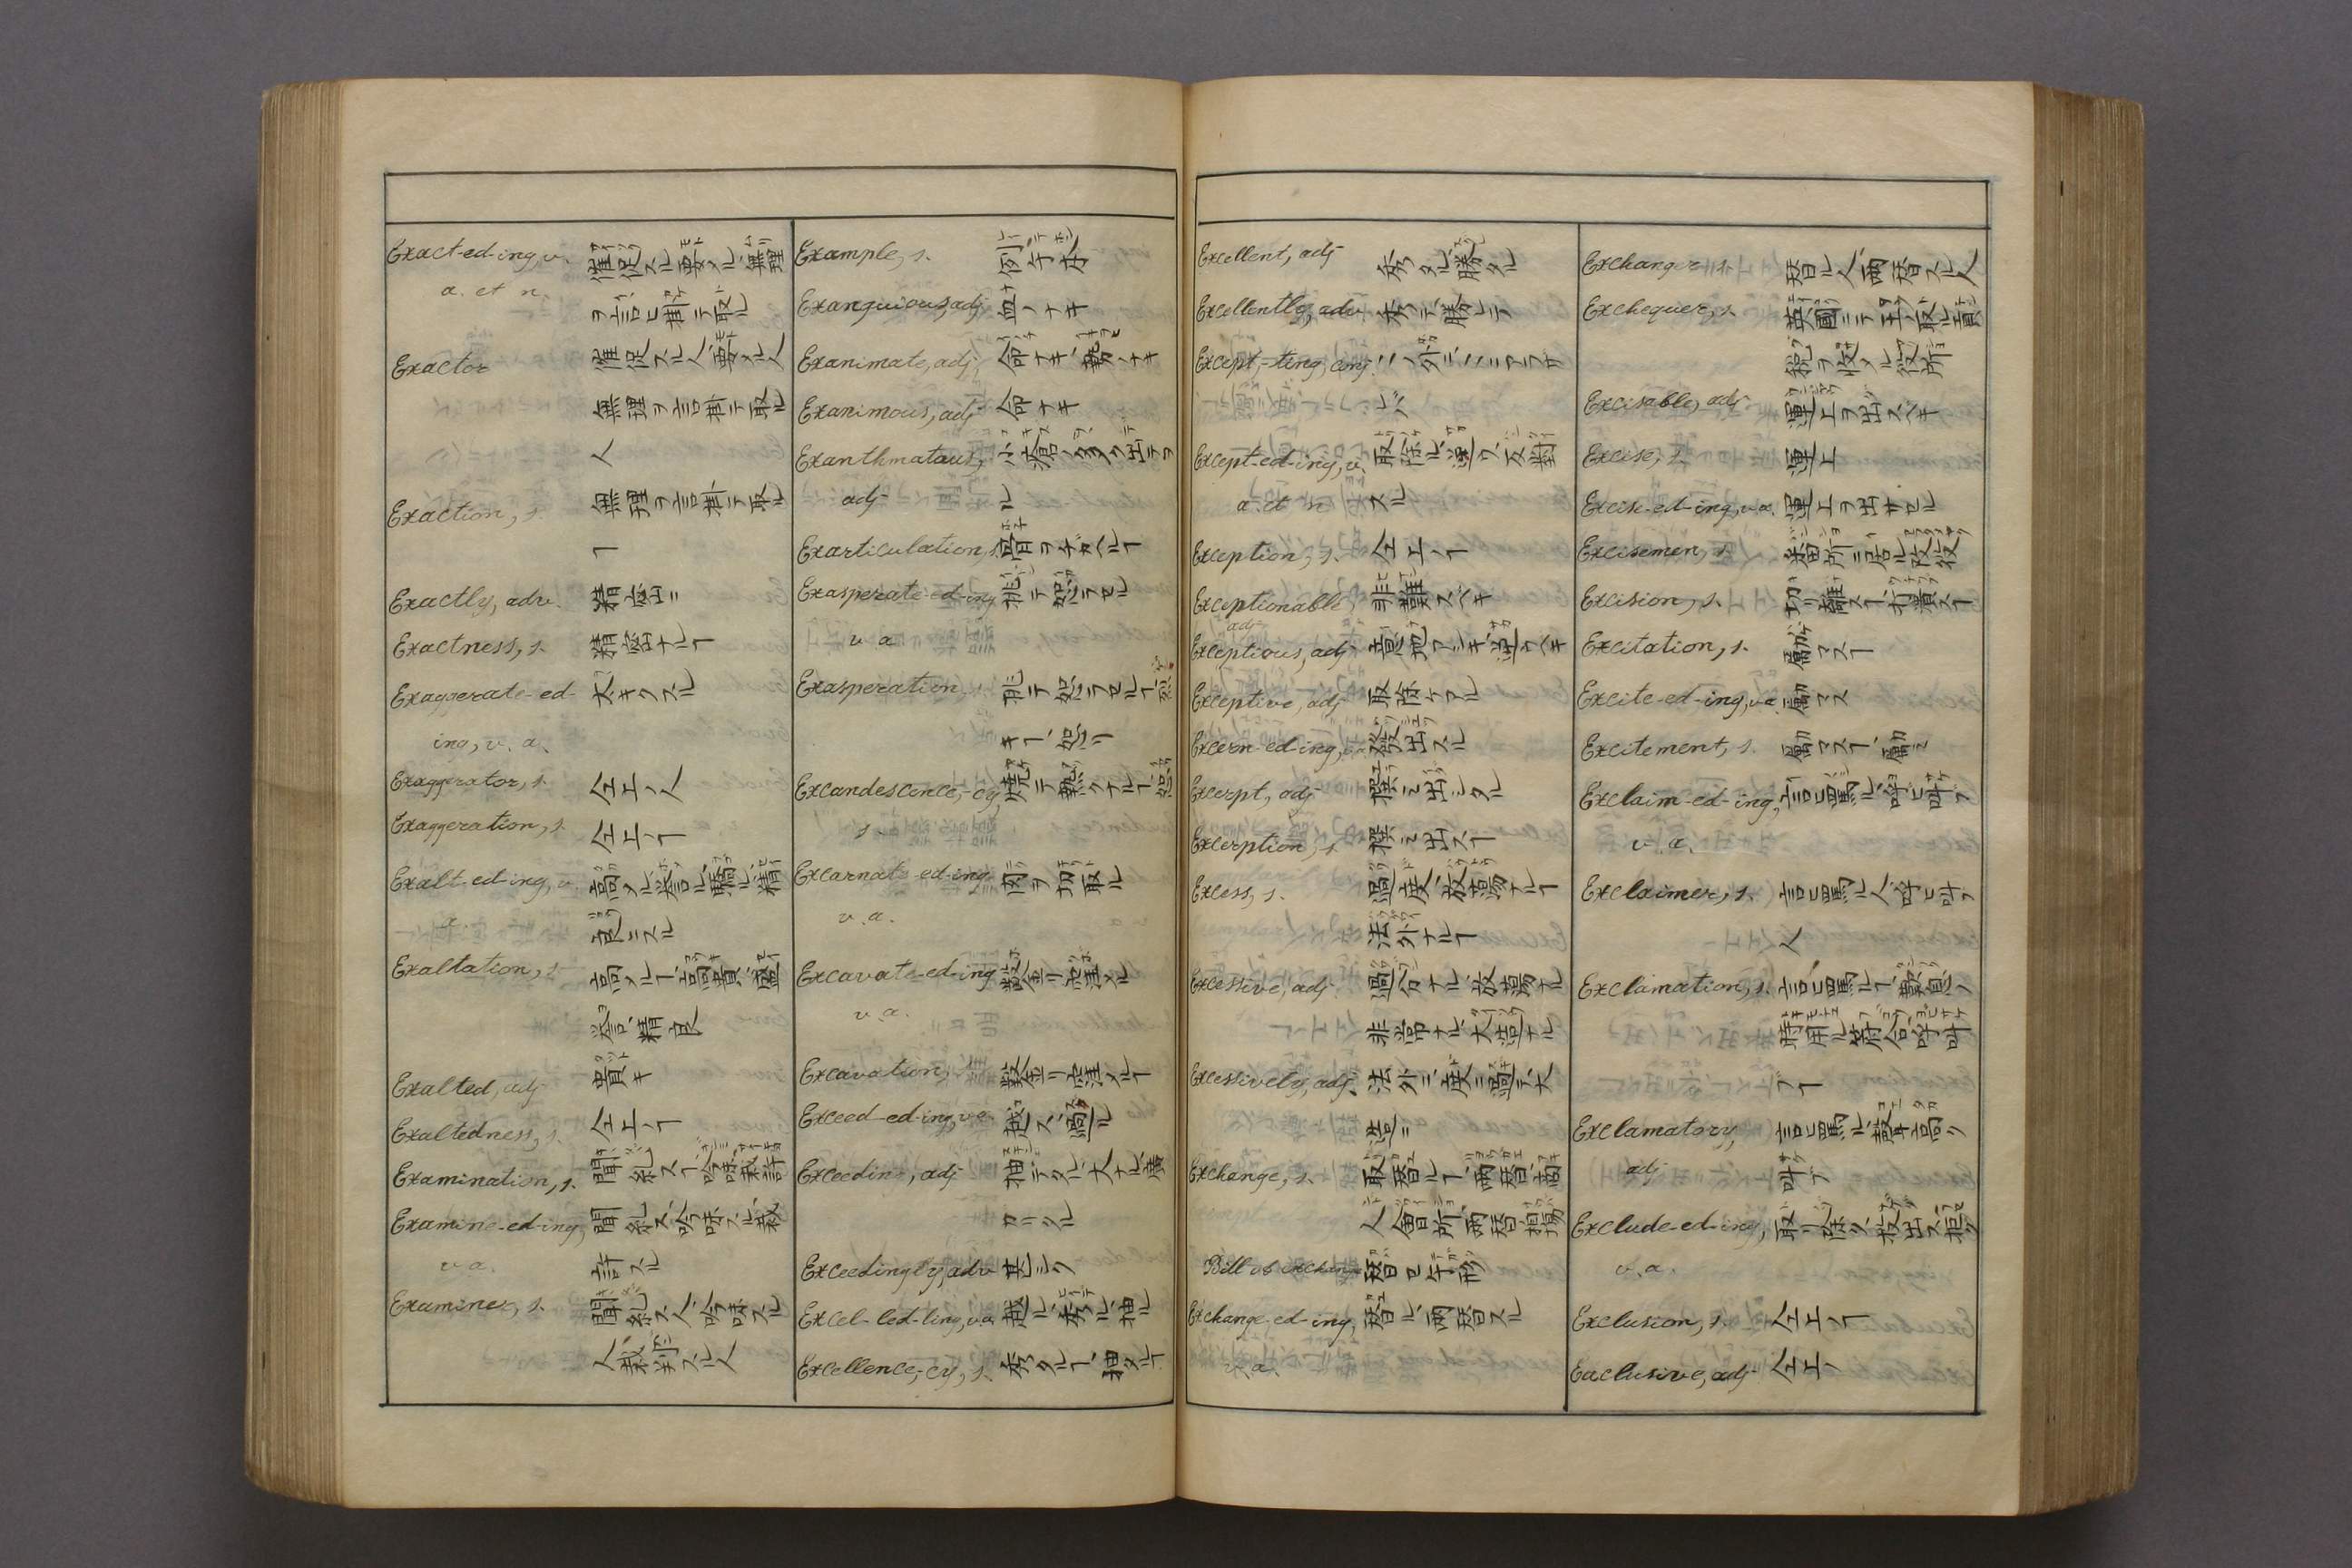 Exact-ed-ing, v. 催促スル、要メル、無理
a. et n. ヲ言ヒ掛テ取ル
Exactor 催促スル人、要メル人
無理ヲ言掛テ取ル
人
Exaction, s. 無理ヲ言掛テ取ル
ヿ
Exactly, adv. 精密ニ
Exactness, s. 精密ナルヿ
Exaggerate-ed- 大キクスル
ing, v. a.
Exaggerator, s. 仝エノ人
Exaggeration, s. 仝エノヿ
Exalt-ed-ing, v. 高メル、誉ル、驕ル、精
a. 良ニスル
Exaltation, s. 高メルヿ、高貴、盛
誉、精良
Exalted, adj 貴キ
Exaltedness, s. 仝エノヿ
Examination, s. 聞糺スヿ、吟味、裁許
Examine-ed-ing, 聞糺ス、吟味スル、裁
v a. 許スル
Examiner, s. 聞糺ス人、吟味スル
人、裁判スル人
Example, s. 例、手本
Exanguious, adj 血ノナキ
Exanimate, adj, 命ナキ、勢ノナキ
Exanimous, adj 命ナキ
Exanthmataus, 小瘡ノ多ク出テヲ
adj ル
Exarticulation, s. 骨ヲチガヘルヿ
Exasperate-ed-ing 挑テ怒ラセル
v a
Exasperation, 挑テ怒ラセルヿ、烈
キヿ、怒リ
Excandescence,-cy, 焼テ熱クナルヿ、怒
s
Excarnate-ed-ing 肉ヲ切取ル
v. a.
Excavate-ed-ing 鑿リ窪メル
v. a.
Excavation, 鑿リ窪メルヿ
Exceed-ed-ing, v a 越ス、過ル
Exceeding, adj 抽デタル、大ナル、廣
カリタル
Exceedingly, adv 甚シク
Excel-led-ling, v. a 越ル、秀ル、抽ル
Excellence,-cy, s. 秀タルヿ、抽タルヿ
Excellent, adj 秀タル、勝タル
Excellently, adv 秀テ、勝レテ
Except,-ting, conj. ニノ外ニ、ニアラザ
レバ
Except-ed-ing, v, 取除ル、逆ラフ、反対
a. et n スル
Exception, s. 仝エノヿ
Exceptionable, 非難スベキ
adj
Exceptious, adj 意地アシキ、逆フベキ
Exceptive, adj 取除ケアル
Excern-ed-ing, v. a 發出スル
Excerpt, adj 擇ミ出シタル
Excerption, s. 擇ミ出スヿ
Excess, s. 過度、放蕩ナルヿ
法外ナルヿ
Excessive, adj 過分ナル、放蕩ナル
非常ナル、大造ナル
Excessively, adj. 法外ニ、度ニ過テ、大
造ニ
Exchange, s. 取替ルヿ、両替、商
人會所、両替相場
Bill of exchange 替セ手形
Exchange-ed-ing, 替ル、両替スル
v. a
Exchanger, s. 替ル人、両替スル人
Exchequer, s. 英國ニテ王ノ取ル貢
税ヲ収メル役所
Excisable, adj 運上ヲ出スベキ
Excise, s. 運上
Excise-ed-ing, v a. 運上ヲ出サセル
Excisemen, s. 番所ニ居ル改役
Excision, s. 切リ離スヿ、打潰スヿ
Excitation, s. 勵マスヿ
Excite-ed-ing, v a 勵マス
Excitement, s. 勵マスヿ、勵ミ
Exclaim-ed-ing, 言ヒ罵ル、呼ヒ叫フ
v. a.
Exclaimer, s. 言ヒ罵ル人、呼ヒ叫フ
人
Exclamation, s. 言ヒ罵ルヿ、歎息ノ
時用ル符合、呼叫
ブヿ
Exclamatory, 言ヒ罵ル、聲高ク
adj 叫ブ
Exclude-ed-ing, 取リ除ク、投出ス、拒ク
v. a.
Exclusion, s. 仝エノヿ
Eaclusive, adj 仝エノ